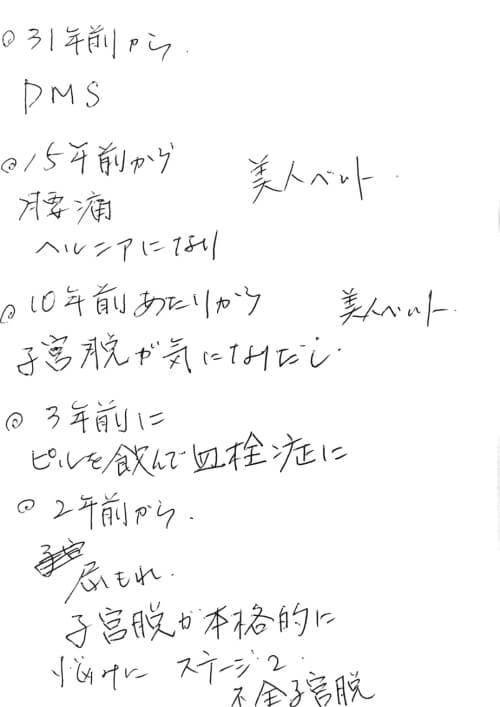 ◎31年前から
PMS
◎15年前から 美人ベルト
腰痛
ヘルニアになり
◎10年前あたりから 美人ベルト
子宮脱が気になりだし
◎3年前に
ピルを飲んで血栓症に
◎2年前から
尿もれ
子宮脱が本格的に
悩みに ステージ2
不全子宮脱